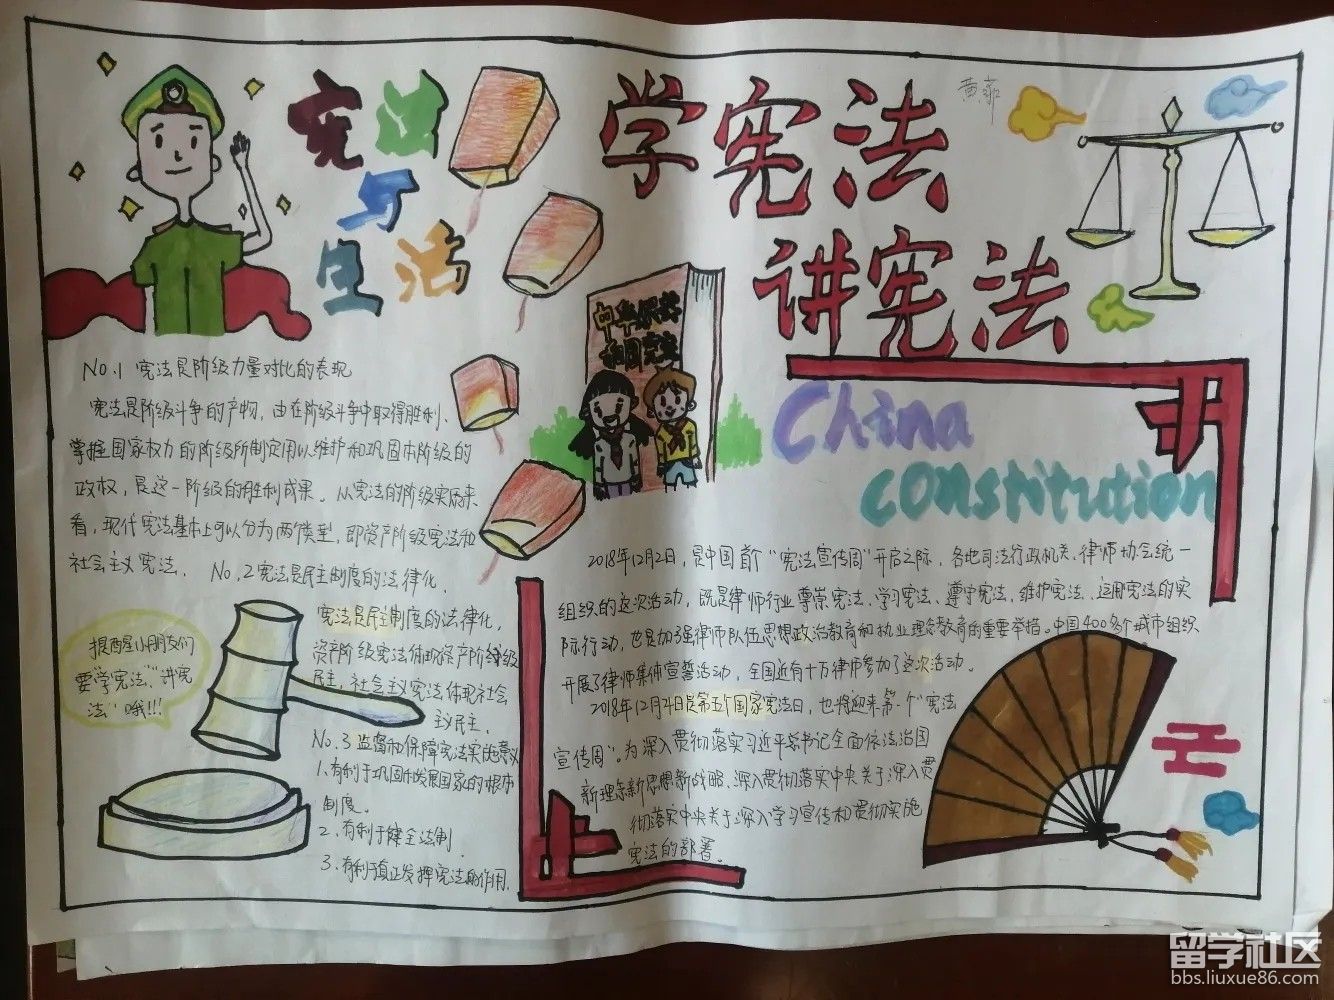 宪法
与
生活
学宪法
讲宪法
黄菲
中华人民
共和国宪法
China
constitution
No.1 宪法是阶级力量对比的表现
宪法是阶级斗争的产物，由在阶级斗争中取得胜利、
掌握国家权力的阶级所制定用以维护和巩固本阶级的
政权，是这一阶级的胜利成果。从宪法的阶级实质来
看，现代宪法基本上可以分为两个类型，即资产阶级宪法和
社会主义宪法。
No.2 宪法是民主制度的法律化。
宪法是民主制度的法律化，
资产阶级宪法体现资产阶级
民主，社会主义宪法体现社会
主义民主。
No.3 监督和保障宪法实施意义
1.有利于巩固和发展国家的根本
制度。
2.有利于健全法制.
3.有利于真正发挥宪法的作用.
提醒小朋友们
要“学宪法”“讲宪
法”哦!!!
2018年12月2日，是中国首个“宪法宣传周”开启之际，各地司法行政机关、律师协会统一
组织的这次活动，既是律师行业尊崇宪法、学习宪法、遵守宪法、维护宪法、运用宪法的实
际行动，也是加强律师队伍思想政治教育和执业理念教育的重要举措。中国400多个城市组织
开展了律师集体宣誓活动，全国近有十万律师参加了这次活动。
2018年12月4日是第五个国家宪法日，也将迎来第一个“宪法
宣传周”。为深入贯彻落实习近平总书记全面依法治国
新理念新思想新战略、深入贯彻落实中央关于深入贯
彻落实中央关于深入学习宣传和贯彻实施
宪法的部署。
留学社区
bbs.liuxue86.com